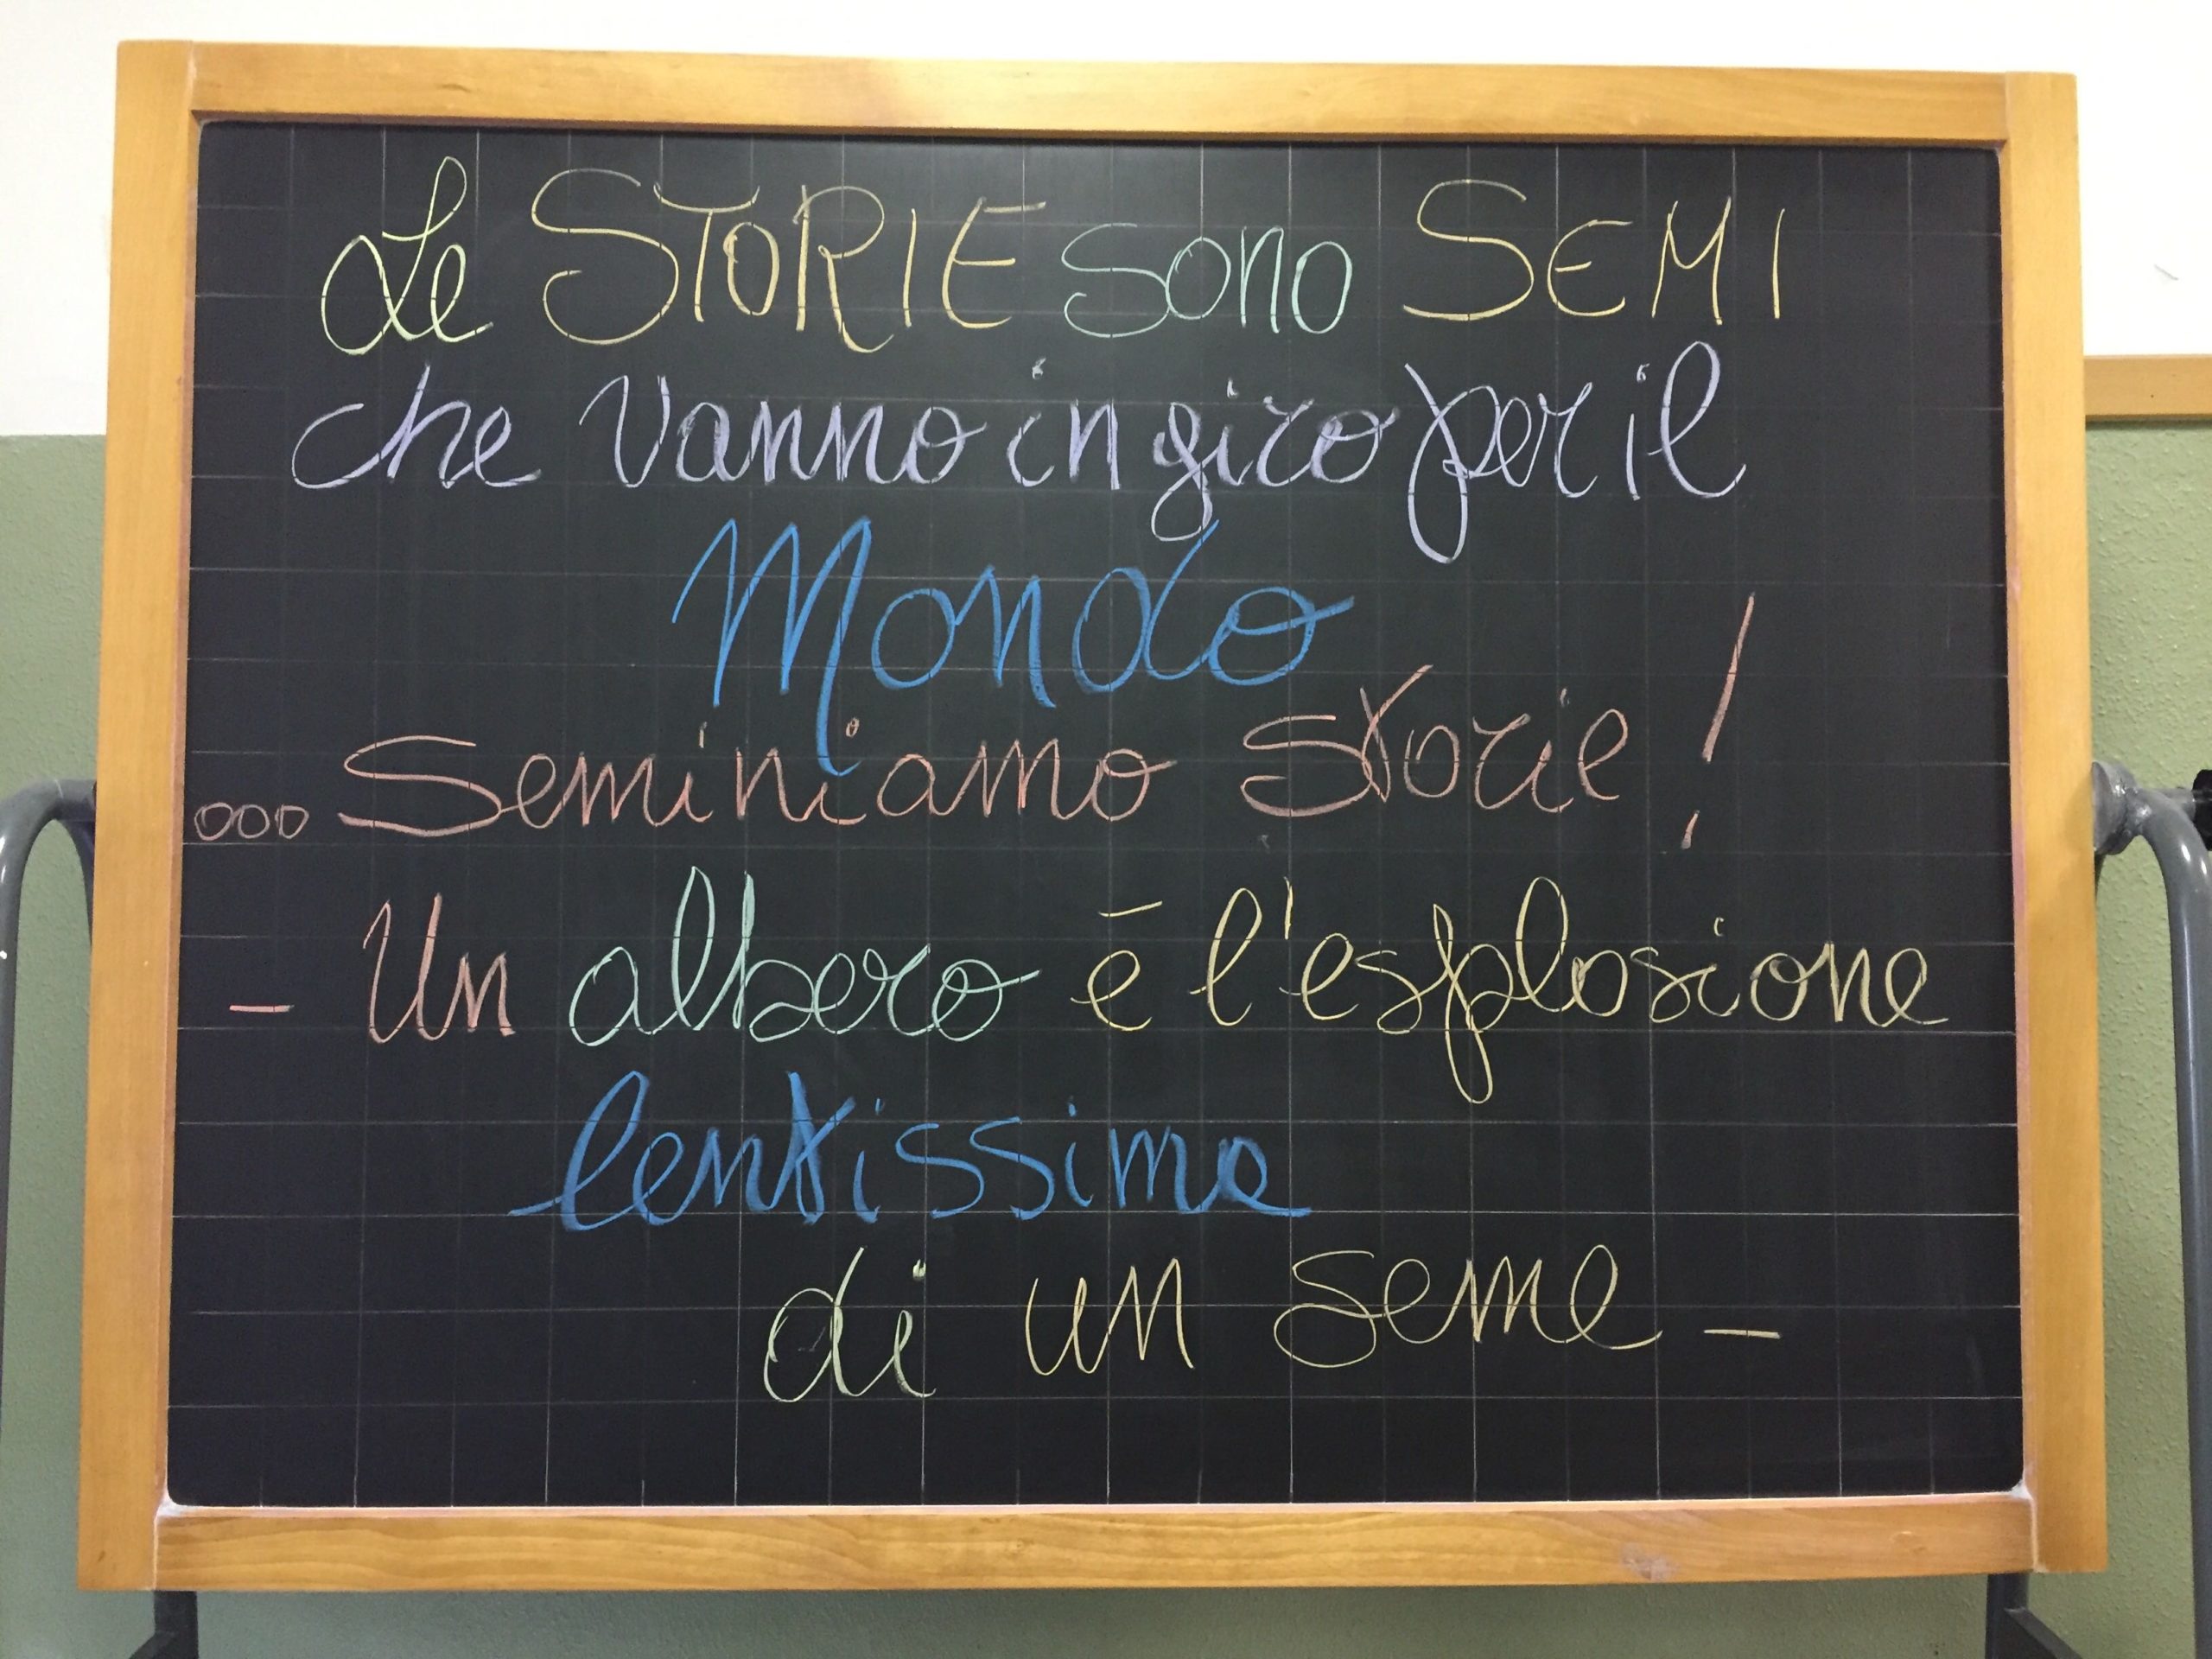 Le STORIE sono SEMI
che vanno in giro per il
Mondo
...Seminiamo storie!
- Un albero è l'esplosione
lentissima
di un seme -